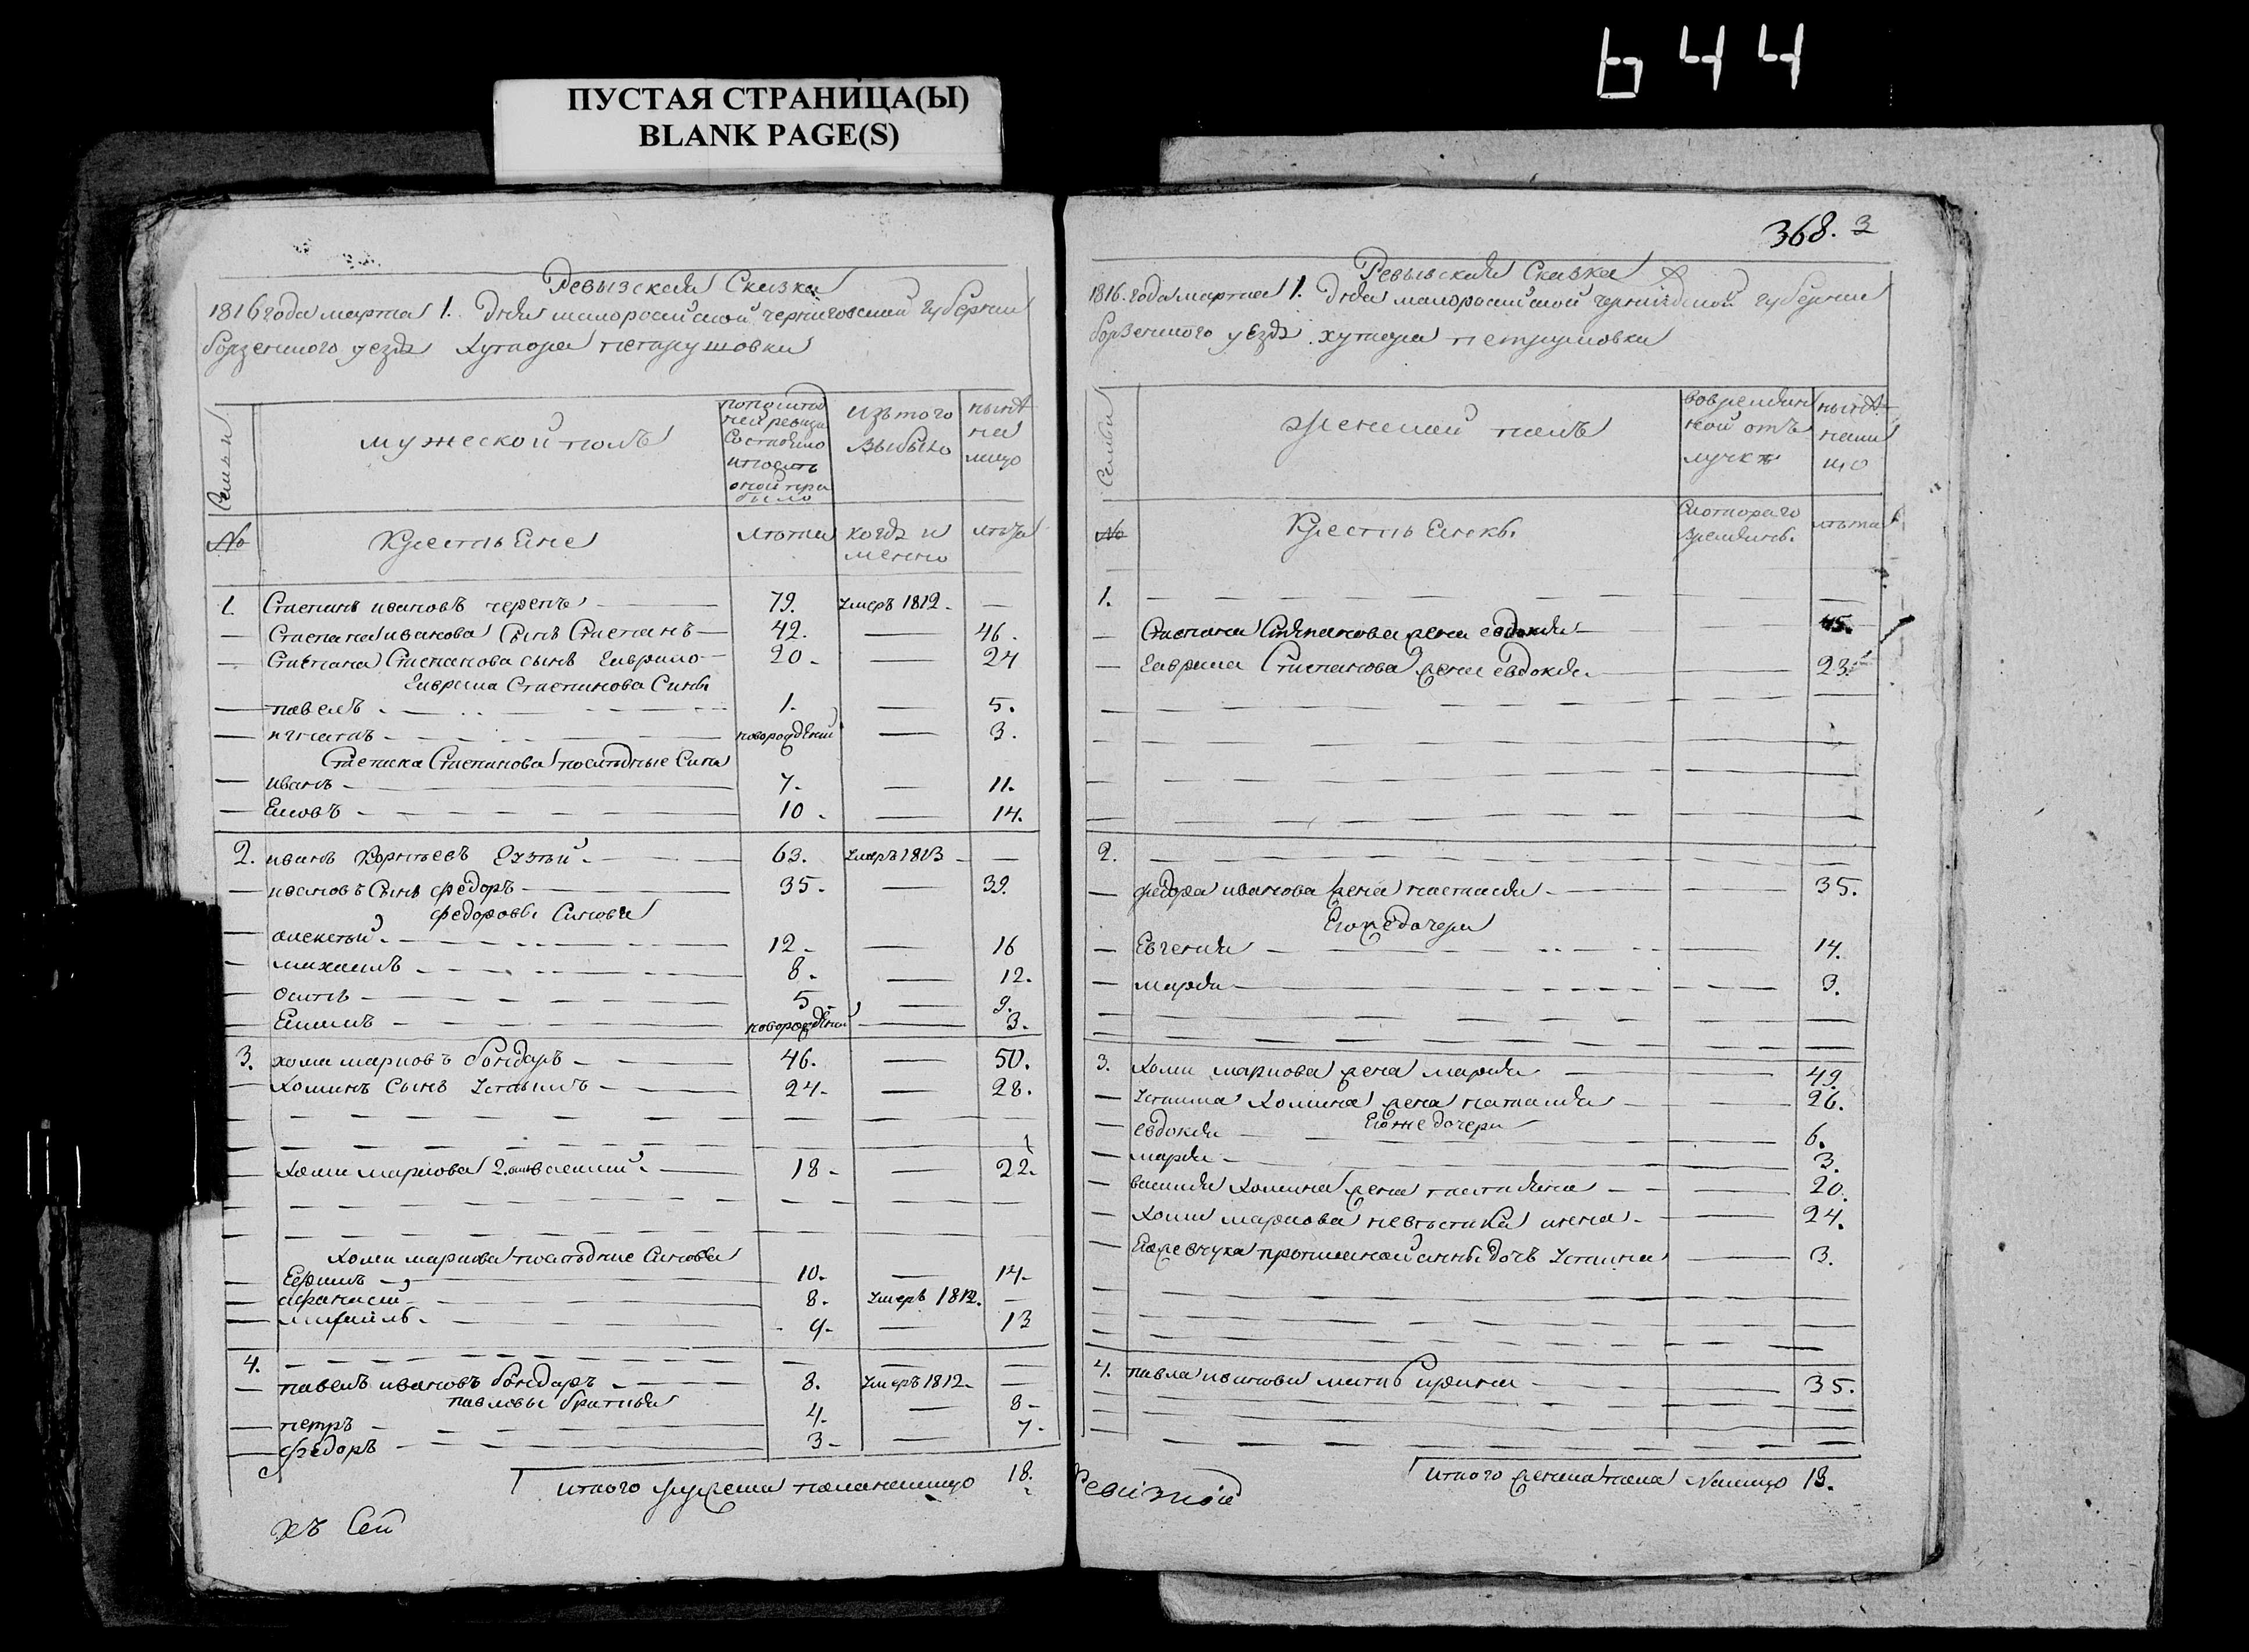 644
ПУСТАЯ СТРАНИЦА(Ы)
BLANK PAGE(S)
Ревызская Сказка
1816 года марта 1. Дня малороссийской черниговской губернии
борзенского уезда Хутора петрушовки
Семьи
мужеской полъ
Изъ того
выбыло
ныне
на
лицо
№
Крестьяне
лета
когда и
менно
лета
1. Степанъ ивановъ черепъ 79. Умеръ 1812. —
— Степана иванова Сынъ Степанъ 42. — 46.
— Степана Степанова сынъ Гаврило 20. — 24
Гаврила Степанова Сины
— павелъ 1. — 5.
— игнатъ новорождений — 3.
Степана Степанова последные Сина
— иванъ 7. — 11.
— Яковъ 10. — 14.
2. иванъ 63. Умеръ 1813 —
— ивановъ Сынъ федоръ 35. — 39.
федоровы Синовя
— алексей 12. — 16
— михаилъ 8. — 12.
— Осипъ 5. — 9.
— новорожденый — 3.
3. хома марковъ бондаръ 46. — 50.
— хоминъ Сынъ Устымъ 24. — 28.
— хоми маркова 2. сынъ василий 18. — 22.
Хоми маркова последние Синовя
— Ефимъ 10. — 14.
— афанасий 8. Умеръ 1812. —
— 9. — 13
4.
— павелъ ивановъ бондаръ 8. Умеръ 1812. —
павловы братия
— петръ 4. — 8.
— федоръ 3. — 7.
итого мужеска пола налицо 18.
хъ Сей
368. 3
Ревызская Сказка
1816. года марта 1. Дня малороссийской черниговской губернии
борзенского уезда. хутора петрушовки
Семьи
Женской полъ
вовременной отъ
лучке
ныне
нали
цо
№
Крестьянкы
Скоторого
времины.
лета
1.
— Степана Степанова жена евдокия — 45.
— Гаврила Степанова жена евдокия — 23.
2.
— федора иванова жена настасия — 35.
Егож дочери
— Евгения — 14.
— мария — 3.
3. Хоми маркова жена мария — 49.
— Устима хомина жена наталия — 26.
Егоже дочери
— евдокия — 6.
— мария — 3.
— василия хомина жена татияна — 20.
— Хоми маркова невестка — 24.
— дочъ Устина — 3.
4. павла иванова матъ ирина — 35.
итого женска пола Налицо 13.
Ревизкой